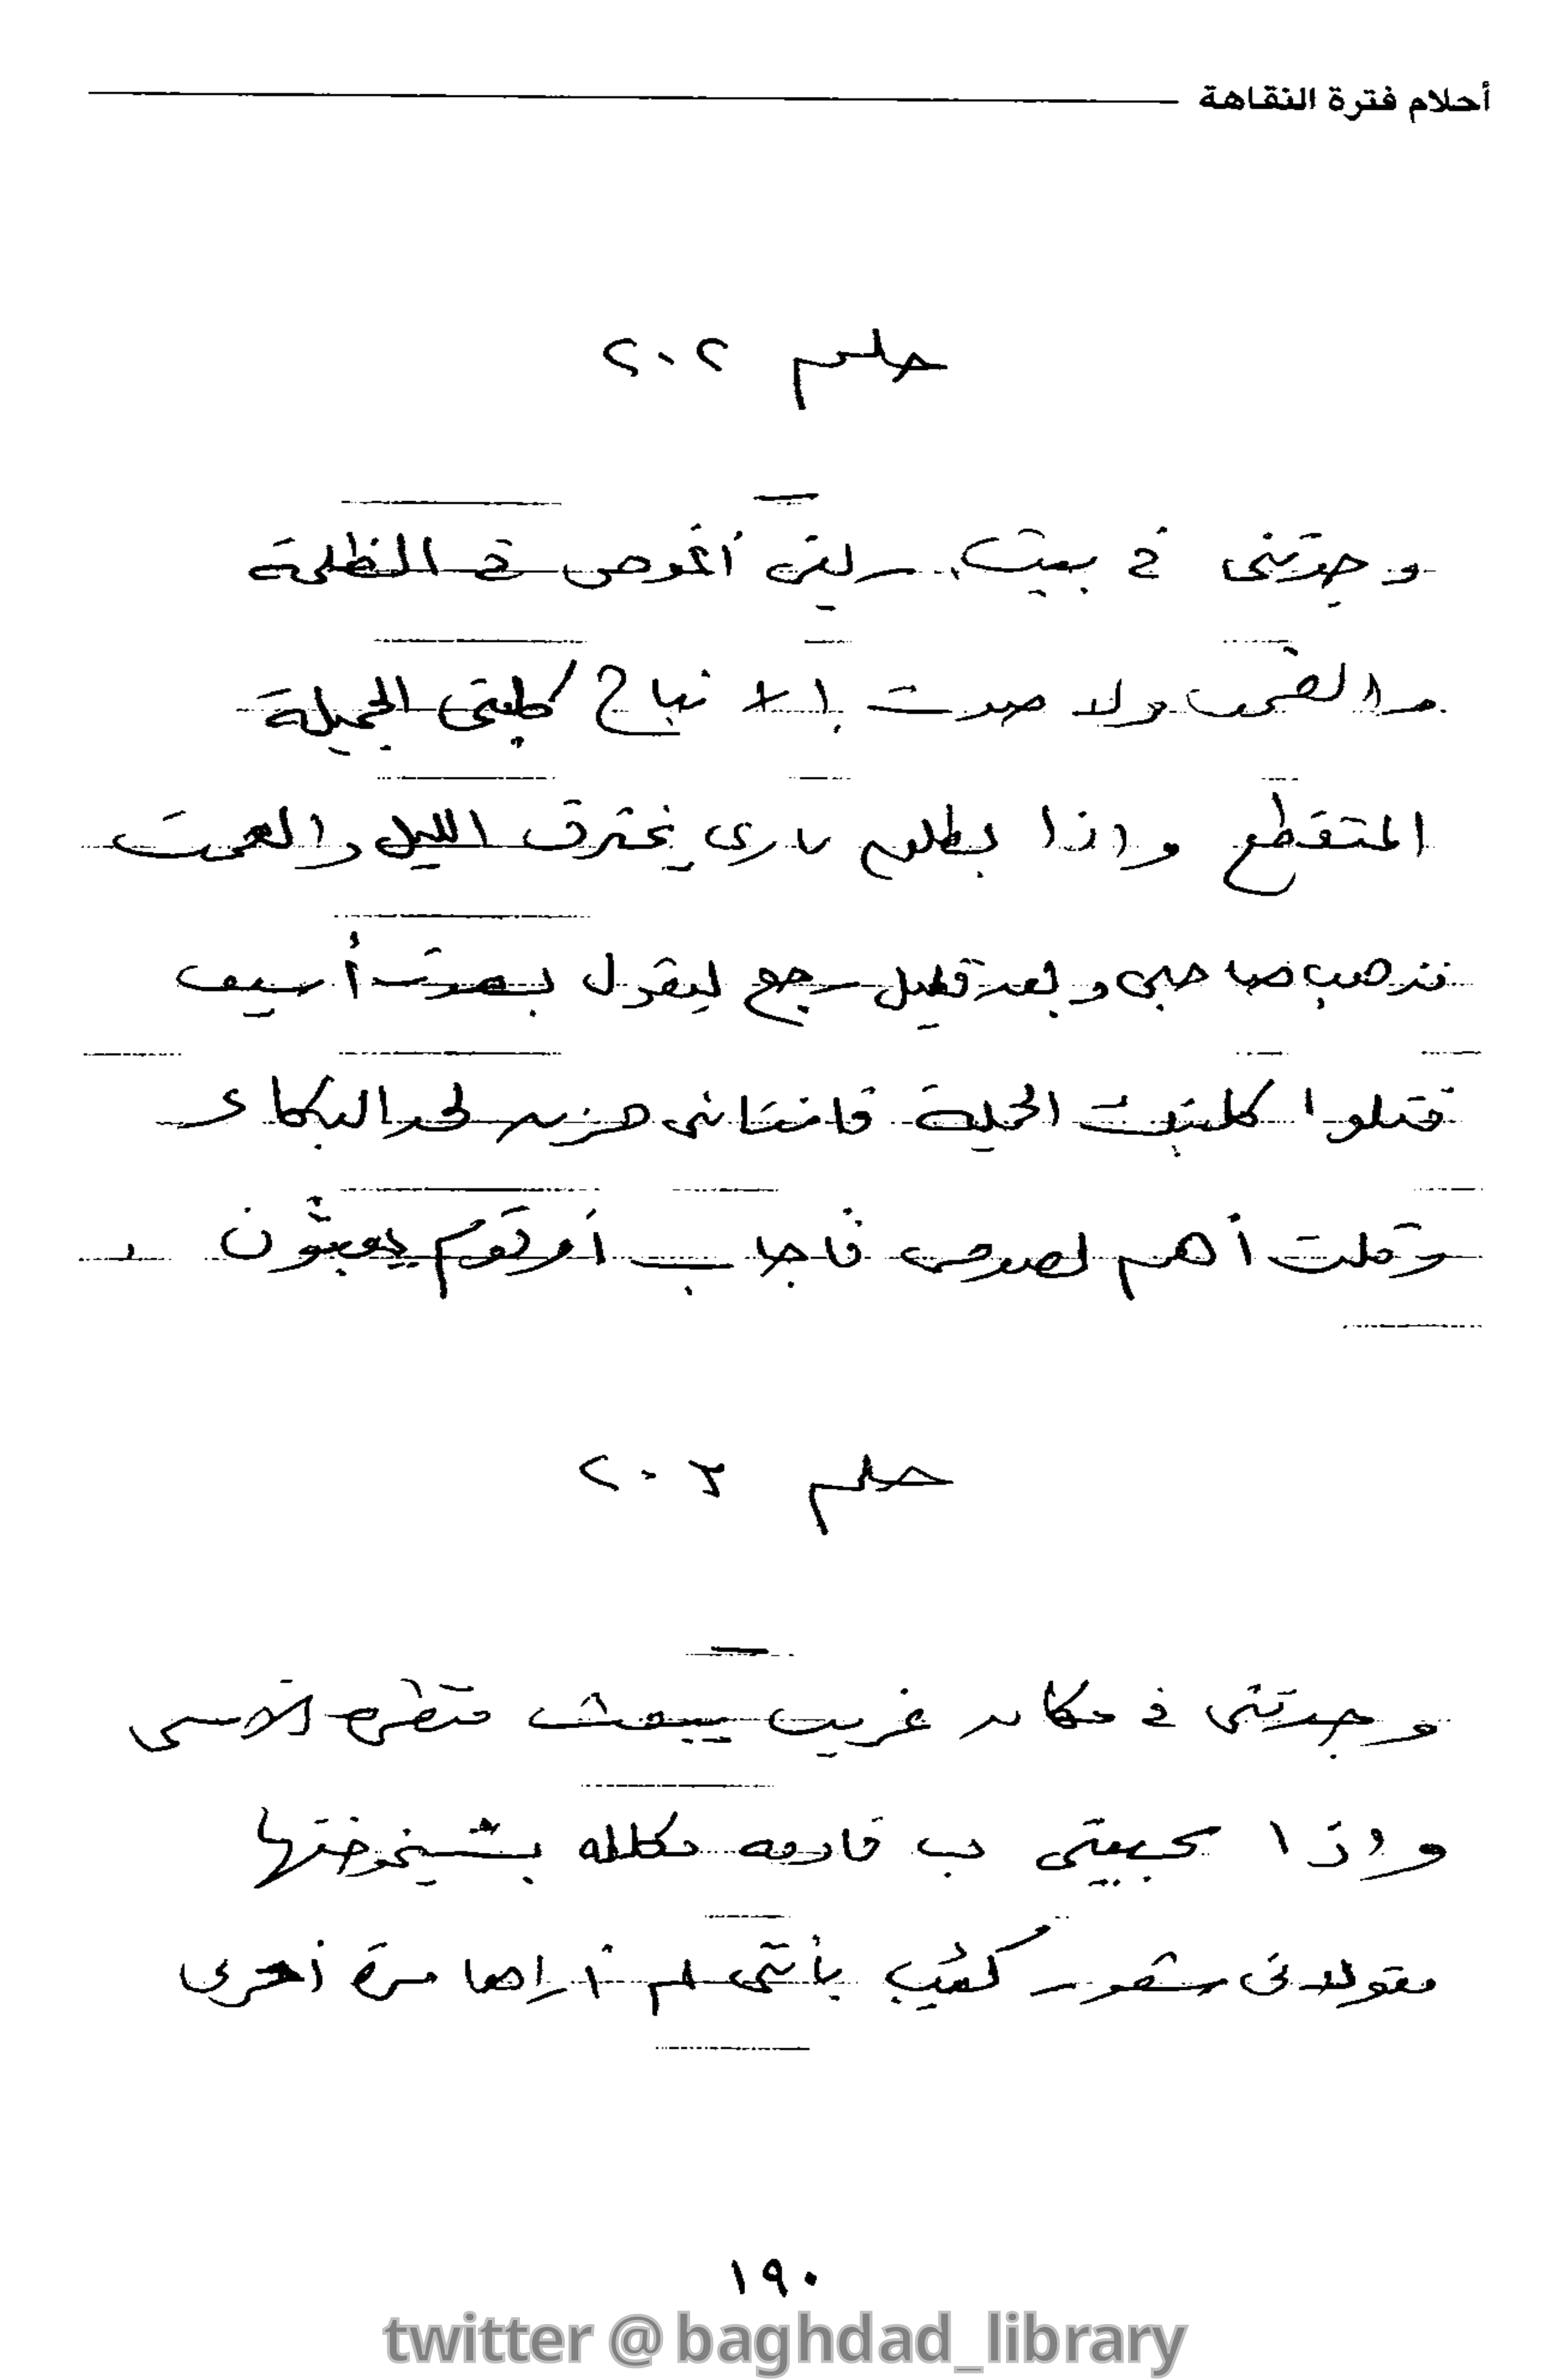 أحلام فترة النقاهة
حلم ٢٠٢
وجدتنى فى بيت ريفى أغوص فى الظلمة
والصمت ولا صوت إلا نباح كلبتى الجميلة
المتقطع واذا بطلق نارى يخترق الليل والصمت
فذهب صاحبى وبعد قليل رجع ليقول بصوت أسيف
قتلوا كلبتك الجميلة فانتابنى حزن لحد البكاء
وقلت أهم لصوص فأجاب أو قوم يعبثون .
حلم ٢٠٣
وجدتنى فى مكان غريب يبعث منظره الأسى
وإذا بحبيبتى ب قادمه مكلله بشيخوختها
شعور كئيب بأننى لم أراها مرة أخرى
١٩٠
twitter @baghdad_library